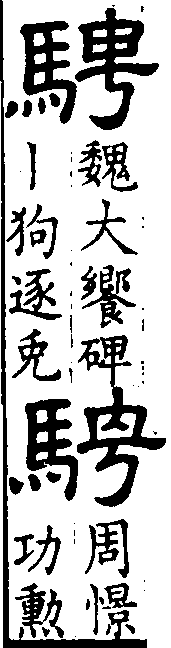 騁
魏大饗碑
丨狗逐兔
騁
周憬
功勳